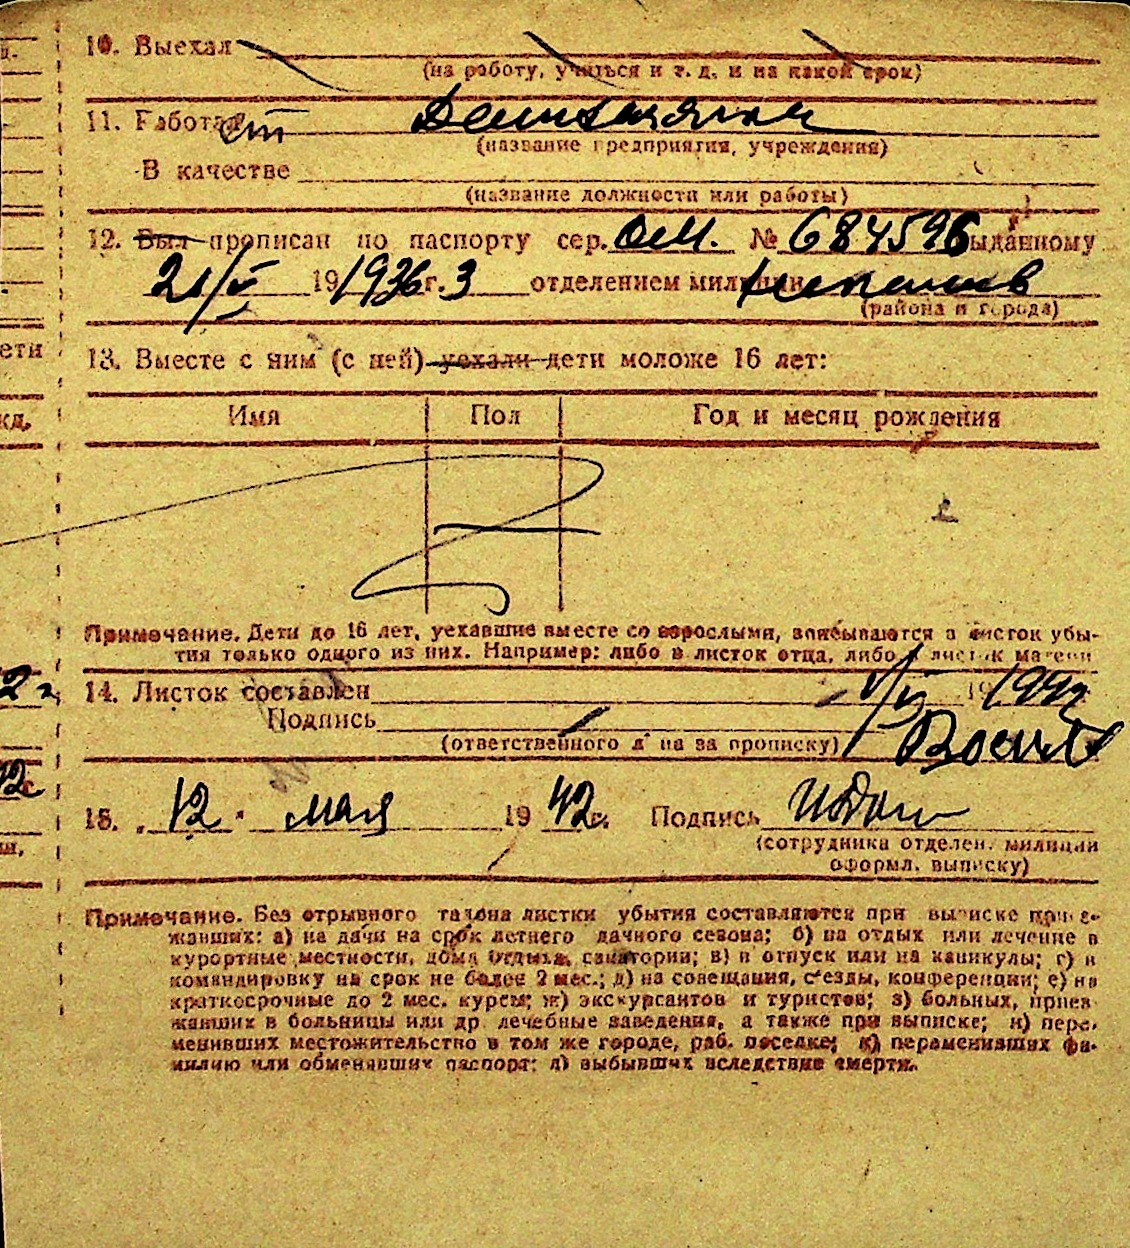 10. Выехал
(на работу, учиться и т. д. и на какой срок)
11. Работал
(название предприятия, учреждения)
В качестве
(название должности или работы)
12. Был прописан по паспорту сер. ОМ. № 684596 выданному
21/V 19 1936 г. 3 отделением милиции
(района и города)
13. Вместе с ним (с ней) уехали дети моложе 16 лет:
ети
жд.
Имя Пол Год и месяц рождения
Примечание. Дети до 16 лет, уехавшие вместе со взрослыми, вписываются в листок убы-
тия только одного из них. Например: либо в листок отца, либо в листок матери
2 г.
14. Листок составлен 19 1942
Подпись
(ответственного л на за прописку)
42 г.
15. "12" мая 19 42 г. Подпись
(сотрудника отделен. милиции
оформл. выписку)
Примечание. Без отрывного талона листки убытия составляются при выписке прие-
жавших: а) на дачи на срок летнего дачного сезона; б) на отдых или лечение в
курортные местности, дома отдыха, санатории; в) в отпуск или на каникулы; г) в
командировку на срок не более 2 мес.; д) на совещания, съезды, конференции; е) на
краткосрочные до 2 мес. курсы; ж) экскурсантов и туристов; з) больных, приез-
жавших в больницы или др лечебные заведения, а также при выписке; и) пере-
менивших местожительство в том же городе, раб. поселке; к) переменивших фа-
милию или обменявших паспорт; л) выбывших вследствие смерти.